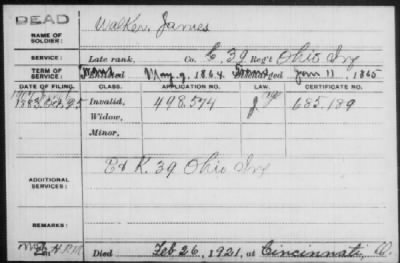 DEAD
Walker, James
NAME OF SOLDIER:
SERVICE: Late rank, Co. E. 39 Reg't Ohio Inf
TERM OF SERVICE: Enlisted May 9, 1864 Discharged Jan 11, 1865
DATE OF FILING. CLASS. APPLICATION NO. LAW. CERTIFICATE NO.
1883 Oct. 9, Invalid, 498.574 685.189
Widow,
Minor,
ADDITIONAL SERVICES: K. 39 Ohio Inf
REMARKS:
Died Feb 26, 1921, at Cincinnati, O.